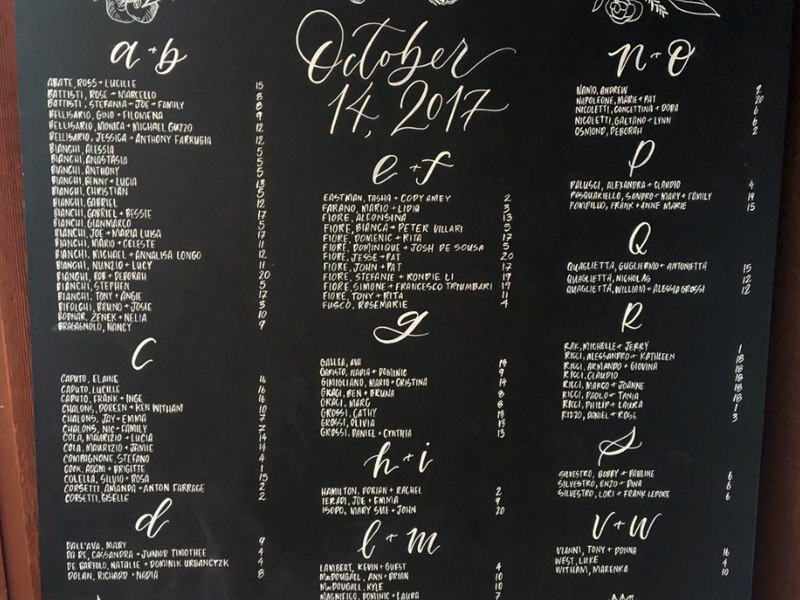 a + b
ABATE, ROSS + LUCILLE 15
BATTISTI, ROSE + MARCELLO 8
BATTISTI, STEFANIA + JOE + FAMILY 8
BELLISARIO, GINO + FILOMENA 9
BELLISARIO, MONICA + MICHAEL GUZZO 12
BELLISARIO, JESSICA + ANTHONY FARRUGIA 12
BIANCHI, ALESSIA 5
BIANCHI, ANASTASIA 5
BIANCHI, ANTHONY 5
BIANCHI, BENNY + LUCIA 13
BIANCHI, CHRISTIAN 5
BIANCHI, GABRIEL 12
BIANCHI, GABRIEL + BESSIE 17
BIANCHI, GIANMARCO 5
BIANCHI, JOE + MARIA LUISA 17
BIANCHI, MARIO + CELESTE 11
BIANCHI, MICHAEL + ANNALISA LONGO 12
BIANCHI, NUNZIO + LUCY 11
BIANCHI, ROB + DEBORAH 20
BIANCHI, STEPHEN 5
BIANCHI, TONY + ANGIE 17
BIFOLCHI, BRUNO + JOSIE 3
BODNAR, ZENEK + NELIA 10
BRAGAGNOLO, NANCY 9
c
CAPUTO, ELAINE 16
CAPUTO, LUCILLE 16
CAPUTO, FRANK + INGE 16
CHALONS, DOREEN + KEN WITHAM 10
CHALONS, JAY + EMMA 7
CHALONS, NIC + FAMILY 7
COLA, MAURIZIO + LUCIA 14
COLA, MAURIZIO + JAMIE 14
COMPAGNONE, STEFANO 4
COOK, ADAM + BRIGITTE 1
COLELLA, SILVIO + ROSA 15
CORSETTI, AMANDA + ANTON FARRAGE 2
CORSETTI, GISELLE 2
d
DALL'AVA, MARY 9
DA RE, CASSANDRA + JUNIOR TIMOTHEE 4
DE BARTOLO, NATALIE + DOMINIK URBANCZYK 4
DOLAN, RICHARD + NADIA 8
October
14, 2017
e + f
EASTMAN, TASHA + CODY AMEY 2
FARANO, MARIO + LIDIA 3
FIORE, ALFONSINA 13
FIORE, BIANCA + PETER VILLARI 5
FIORE, DOMENIC + RITA 17
FIORE, DOMINIQUE + JOSH DE SOUSA 5
FIORE, JESSE + PAT 20
FIORE, JOHN + PAT 17
FIORE, STEFANIE + RONDIE LI 19
FIORE, SIMONE + FRANCESCO TRYUMBARI 19
FIORE, TONY + RITA 11
FUSCO, ROSEMARIE 4
g
GALLEA, AVA 19
GARISTO, NADIA + DOMINIC 9
GIMIGLIANO, MARIO + CRISTINA 14
GRACI, BEN + BRUNA 8
GRACI, MARC 8
GROSSI, CATHY 13
GROSSI, OLIVIA 13
GROSSI, DANIEL + CYNTHIA 13
h + i
HAMILTON, DORIAN + RACHEL 2
IERADI, JOE + EMMA 9
ISOPO, MARY SUE + JOHN 20
l + m
LAMBERT, KEVIN + GUEST 4
MacDOUGALL, ANN + BRIAN 10
MacDOUGALL, KYLE 10
MAGNIFICO, DOMINIC + LAURA 7
n + o
NANIO, ANDREW 2
NAPOLEONE, MARIE + PAT 20
NICOLETTI, CONCETTINA + DORA 6
NICOLETTI, GAETANO + LYNN 6
OSMOND, DEBORAH 2
P
PALUSCI, ALEXANDRA + CLAUDIO 4
PASQUARIELLO, SANDRO + MARY + FAMILY 14
POMPILLO, FRANK + ANNE MARIE 15
Q
QUAGLIETTA, GUGLIERMO + ANTONIETTA 15
QUAGLIETTA, NICHOLAS 12
QUAGLIETTA, WILLIAM + ALESSIA GROSSI 12
R
RAK, MICHELLE + JERRY 1
RICCI, ALESSANDRO + KATHLEEN 18
RICCI, ARMANDO + GIOVINA 18
RICCI, CLAUDIO 18
RICCI, MARCO + JOANNE 18
RICCI, PAOLO + TANIA 18
RICCI, PHILIP + LAURA 1
RIZZO, DANIEL + ROSE 3
S
SILVESTRO, BOBBY + PAULINE 6
SILVESTRO, ENZO + DINA 6
SILVESTRO, LORI + FRANK LEPORE 6
v + w
VIANNI, TONY + DONNA 16
WEST, LUKE 4
WITHAM, MARENKA 10